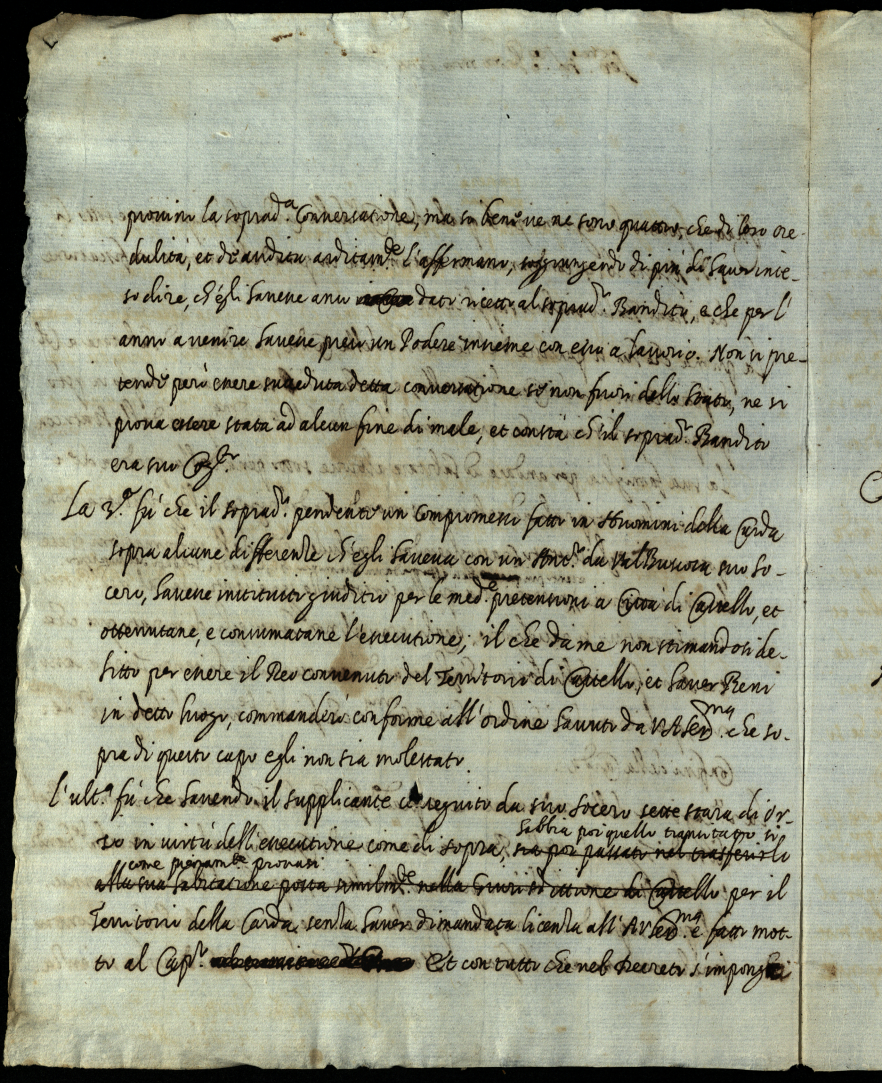 provino la soprad.ª Conversatione, ma si bene ve ne sono quattro, che di loro cre-
dulità, et de auditu arditam.te l'affermano, soggiungendo di più d'haver inte-
so dire, ch'egli havesse anco dato ricetto al soprad.º Bandito, e che per l'
anno a venire havesse preso un Podere insieme con esso a lavorio. Non si pre-
tende però essere succeduta detta conversatione se non fuori dello Stato, ne si
prova essere stata ad alcun fine di male, et consta ch'il soprad.º Bandito
era suo
La 3.ª fù che il soprad.º pendente un Compromesso fatto in Huomini della Carda
sopra alcune differenze ch'egli haveva con un Ant.º da Val Buscosa suo So-
cero, havesse instituito giuditio per le med.e pretensioni a Città di Castello, et
ottenutane, e consumatane l'essecutione, il che da me non stimandosi de-
litto per essere il Reo convenuto del Territorio di Castello, et haver Beni
in detto luogo, commanderò conforme all'ordine havuto da V.A. Ser.ma che so-
pra di questo capo egli non sia molestato
L'ult.ª fù che havendo il supplicante conseguito da suo Socero sette stara di Or-
zo in virtù dell'essecutione come di sopra, sia poi passato nel trasferirlo
habbia poi quello trasportato si
come pienam.te provasi
alla sua habitatione posta similm.te nella Giurisdittione di Castello per il
Territorio della Carda, senza haver dimandata licenza all'A.V. Ser.ma e fatto mot-
to al Cap.º Et con tutto che nel Decreto s'imponghi